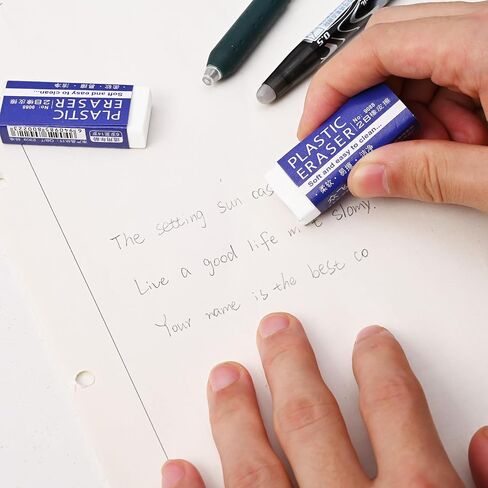 PLASTIC
ERASER
No 9088
2B橡皮擦
Soft and easy to clean...
柔软·易擦·洁净
PLASTIC
ERASER
No 9088
2B橡皮擦
Soft and easy to clean...
柔软·易擦·洁净
0.5
The setting sun cas
Live a good life m t slowly.
Your name is the best co